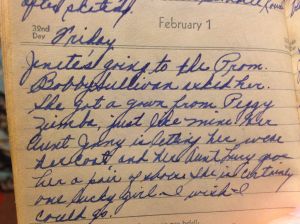 after
February 1
32nd
Day
Friday
going to the Prom.
Bobby Sullivan asked her.
She got a gown from Peggy
Zumba just like mine her
Aunt Jenny is letting her wear
her coat and her Aunt Lucy gave
her a pair of shoes She is certainly
one lucky girl - I wish I
could go.